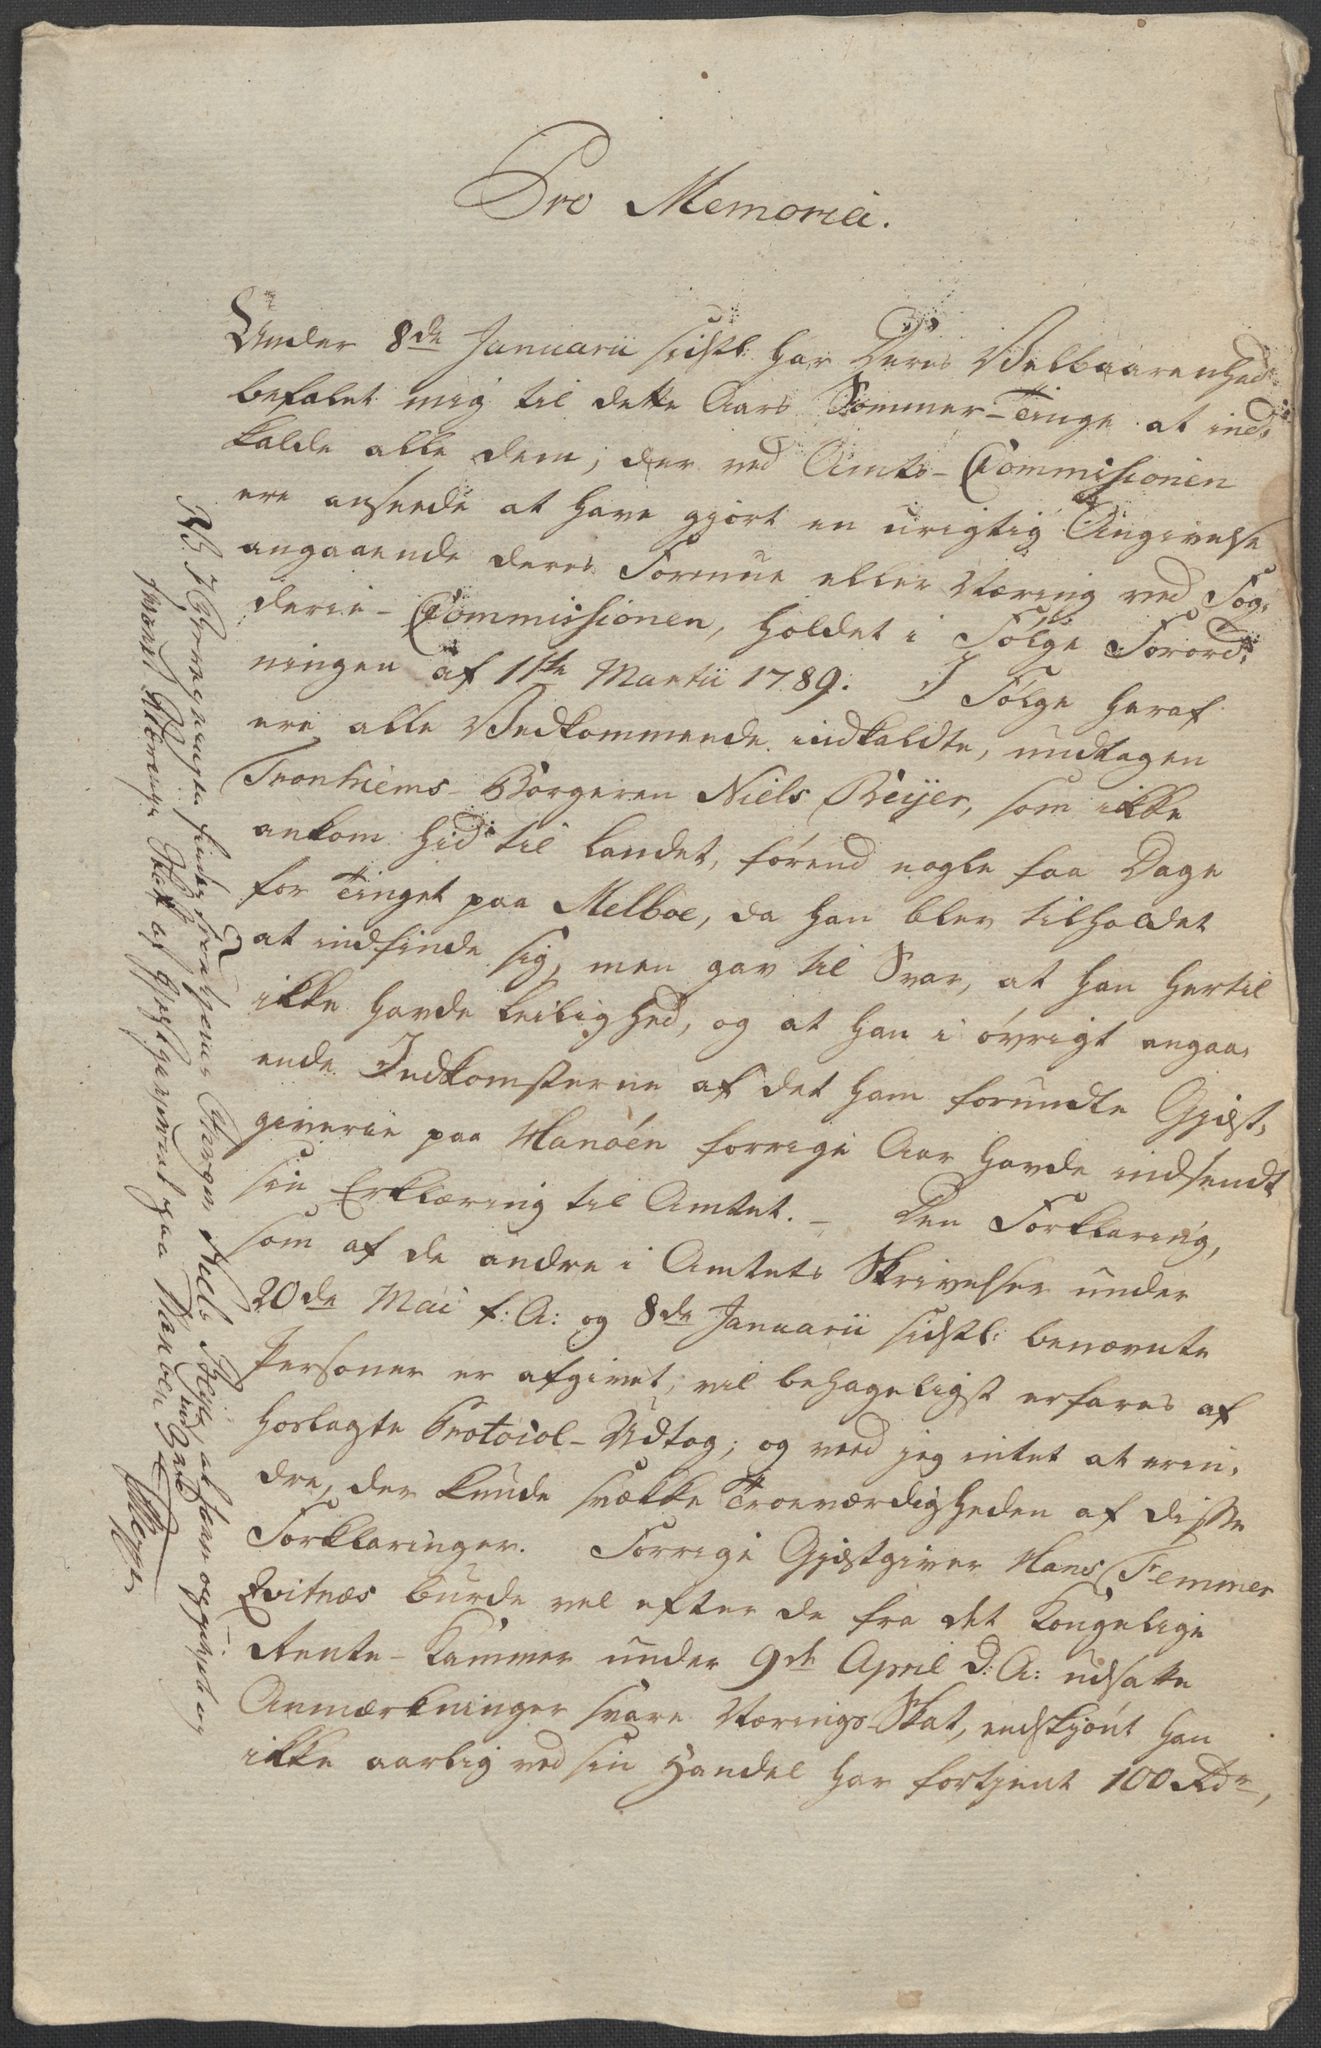 Pro Memoria.
Under 8de Januarii sidstl: har Deres Velbaarenhed
befalet mig til dette Aars Sommer-Tinge at ind-
kalde alle dem, der ved Amts-Commissionen
ere anseede at have gjort en urigtig Angivelse
angaaende deres Formue eller Næring ved Fog-
derie-Commissionen, holdet i Følge Forord-
ningen af 11te Martii 1789. I Følge heraf
ere alle Vedkommende indkaldte, undtagen
Tronhiems-Borgeren Niels Beijer, som ikke
ankom hid til Landet, førend nogle faa Dage
for Tinget paa Melboe, da han blev tilholdet
at indfinde sig, men gav til Svar, at han hertil
ikke havde Leilighed, og at han i øvrigt angaa-
ende Indkomsterne af det ham forundte Gjæst-
giverie paa Hanøen forrige Aar havde indsendt
sin Erklæring til Amtet. - Den Forklaring,
som af de andre i Amtets Skrivelser under
20de Mai f: A: og 8de Januarii sidstl: benævnte
Personer er afgivet, vil behageligst erfares af
hoslagte Protocol-Udtog; og veed jeg intet at erin-
dre, der kunde svække Troeværdigheden af disse
Forklaringer. Forrige Gjæstgiver Hans Femmer
Qvitnæs burde vel efter de fra det Kongelige
Rente-Kammer under 9de April d: A: udsatte
Anmærkninger svare Nærings-Skat, endskjønt han
ikke aarlig ved sin Handel har fortjent 100 Rdr,
NB. I Tronhiems Borger Niels Beijer, at han
svaret Nærings Skat af Gjæstgiveriet paa Hanøen